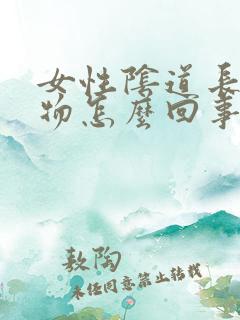 女性陰道長
物怎麼回事
敖陶
未任同意禁止转载